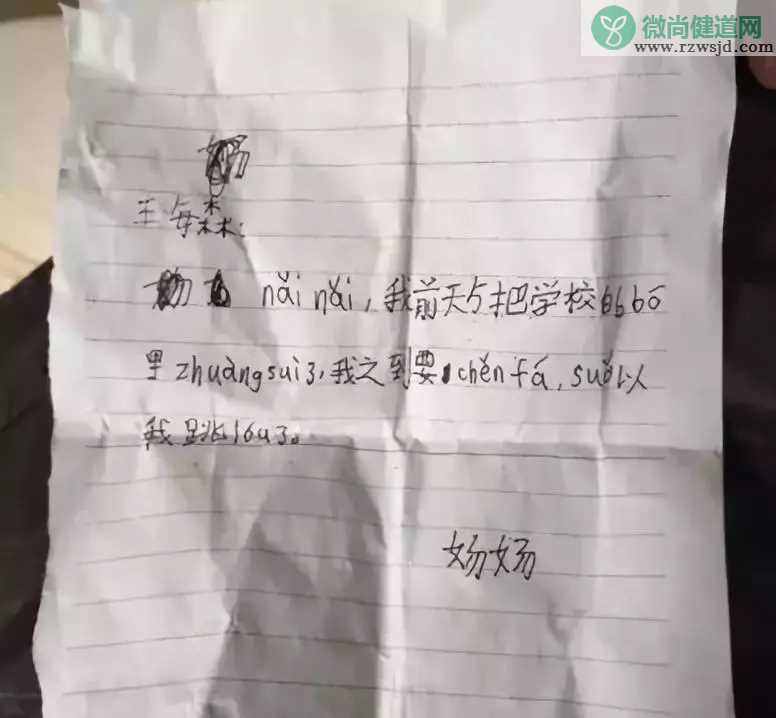 微尚健道网
www.rzwsjd.com
王每森:
nǎi nǎi，我前天把学校的bō
里zhuàngsuì了，我之到要chěnfá，suǒ以
我跳lóu了。
妫妫